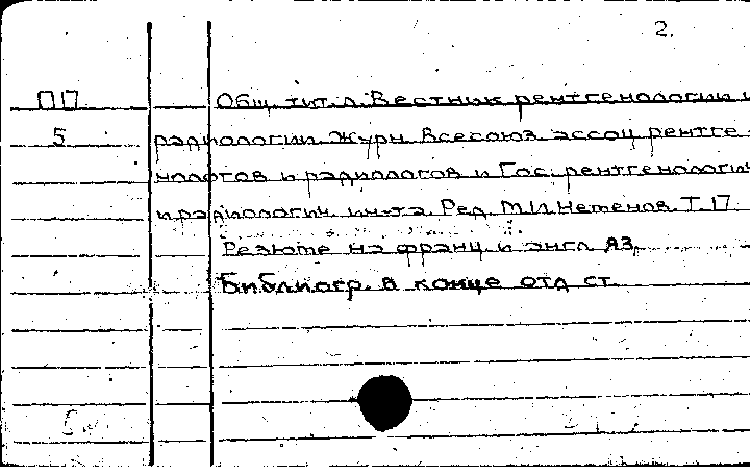 2.
П17 Общ. тит. л. Вестник рентгенологии и
5 радиологии. Журн. Всесоюз. ассоц. рентге-
нологов и радиологов и Гос. рентгенологич.
и радиологич. ин-та. Ред. М.И. Неменов. Т. 17.
Резюме на франц. и англ. яз.
Библиогр. в конце отд. ст.